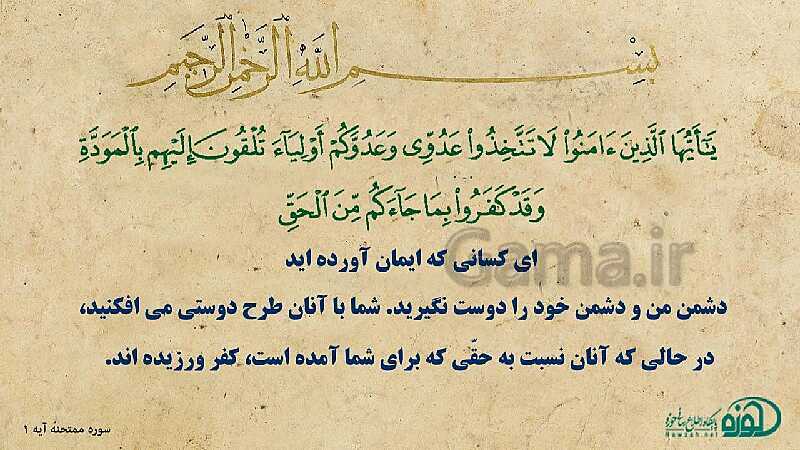 بِسْمِ ٱللَّهِ ٱلرَّحْمَٰنِ ٱلرَّحِيمِ
يَٰٓأَيُّهَا ٱلَّذِينَ ءَامَنُوا۟ لَا تَتَّخِذُوا۟ عَدُوِّى وَعَدُوَّكُمْ أَوْلِيَآءَ تُلْقُونَ إِلَيْهِم بِٱلْمَوَدَّةِ
وَقَدْ كَفَرُوا۟ بِمَا جَآءَكُم مِّنَ ٱلْحَقِّ
ای کسانی که ایمان آورده اید
Gama.ir
دشمن من و دشمن خود را دوست نگیرید. شما با آنان طرح دوستی می افکنید،
در حالی که آنان نسبت به حقّی که برای شما آمده است، کفر ورزیده اند.
سوره ممتحنه آیه ۱
پایگاه اطلاع رسانی حوزه
Hawzah.net
حوزه